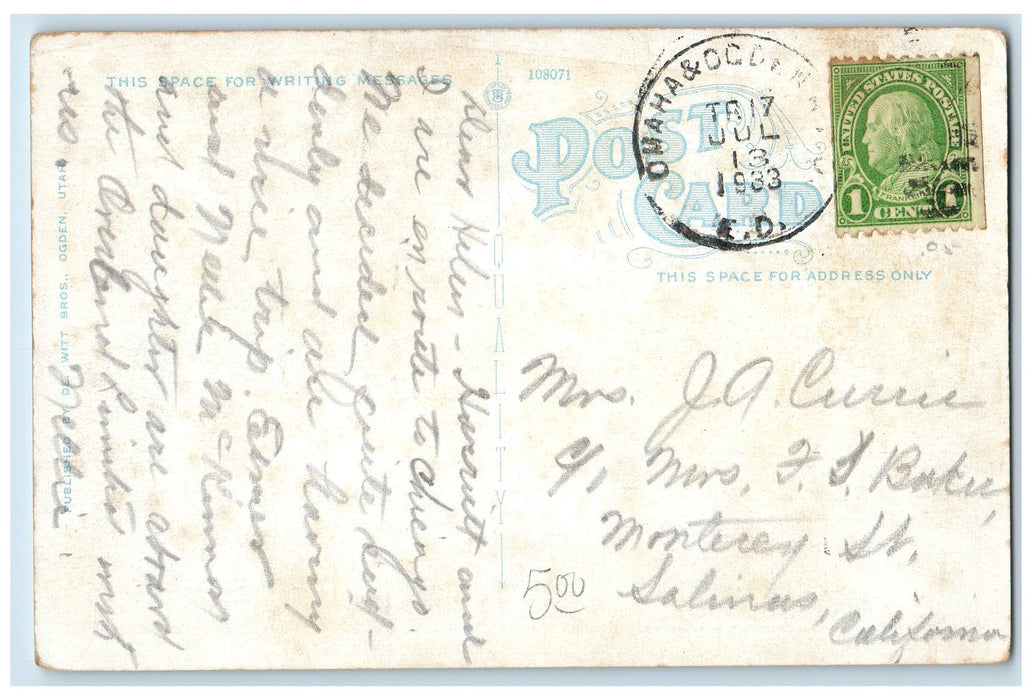 THIS SPACE FOR WRITING MESSAGES
108071
POST CARD
THIS SPACE FOR ADDRESS ONLY
OMAHA & OGDEN
TR 17
JUL
13
1933
E.D.
UNITED STATES POSTAGE
FRANKLIN
1 CENT 1
.05
Dear Helen - Harriett and
I are en route to Chicago
We decided quite sud-
denly and are having
a nice trip. Elmer
and Nelle McKinnor
and daughter are aboard
the Overland Limited with
us.
Nellie
Mrs. J. A. Currie
c/o Mrs. F. S. Baker,
Monterey St.
Salinas,
California
5.00
QUALITY
PUBLISHED BY DE WITT BROS., OGDEN, UTAH.